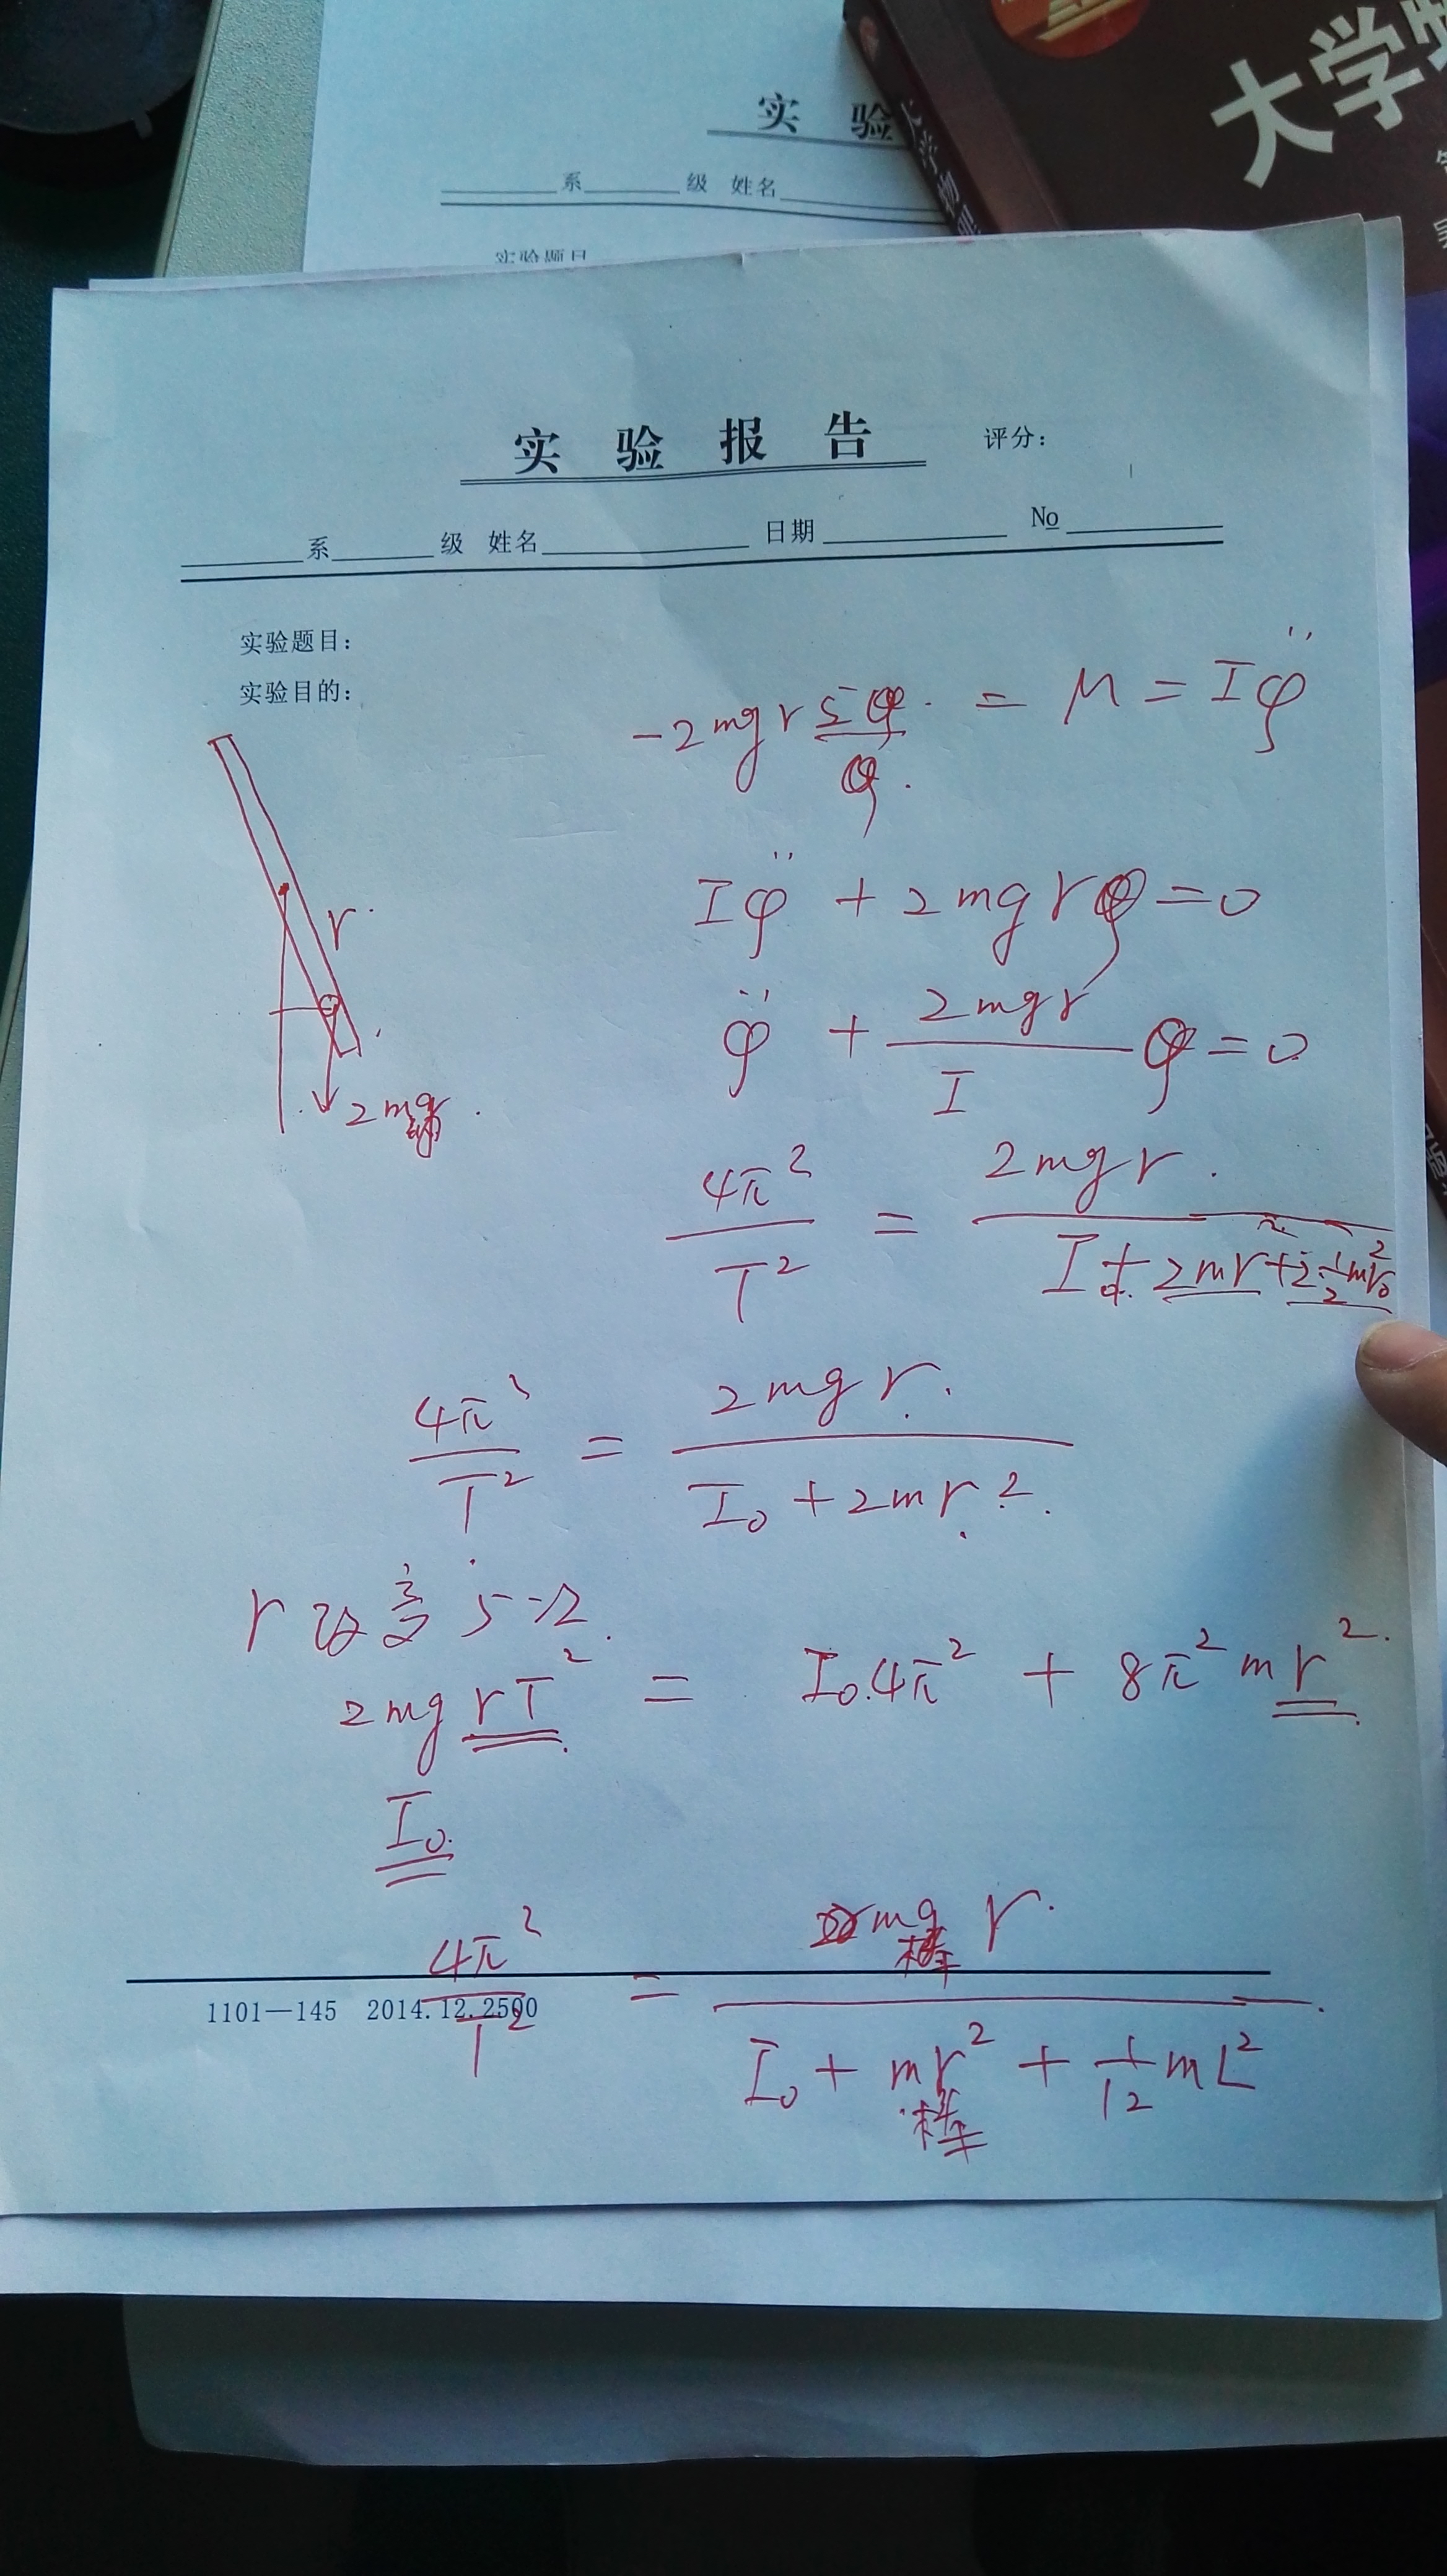 大学物
大学物
实 验
系 级 姓名
实验题目
实 验 报 告 评分:
系 级 姓名 日期 No
实验题目:
实验目的:
-2mgr sinφ = M = Iφ̈
φ
r
2mg
Iφ̈ + 2mgrφ = 0
φ̈ + 2mgr/I φ = 0
4π²/T² = 2mgr / I₀ + 2mr² + 2·1/2 mr₀²
4π²/T² = 2mgr / I₀ + 2mr²
r 改变 5-12
2mg rT² = I₀·4π² + 8π²mr²
I₀
4π²/T² = mg棒 r / I₀ + m棒r² + 1/12 mL²
1101—145 2014.12.2500